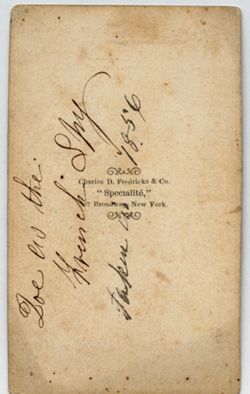 Zoe as the
French Spy
Taken in 1856
Charles D. Fredricks & Co.
"Specialité,"
587 Broadway New York.